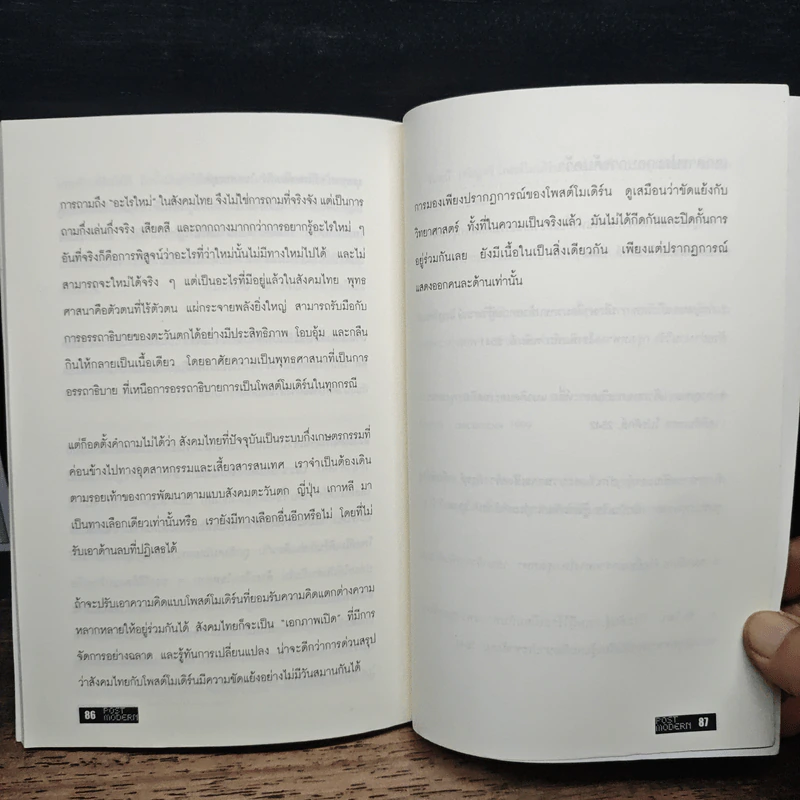 การถามถึง "อะไรใหม่" ในสังคมไทย จึงไม่ใช่การถามที่จริงจัง แต่เป็นการ
ถามกึ่งเล่นกึ่งจริง เสียดสี และถากถางมากกว่าการอยากรู้อะไรใหม่ ๆ
อันที่จริงก็คือการพิสูจน์ว่าอะไรที่ว่าใหม่นั้นไม่มีทางใหม่ไปได้ และไม่
สามารถจะใหม่ได้จริง ๆ แต่เป็นอะไรที่มีอยู่แล้วในสังคมไทย พุทธ
ศาสนาคือตัวตนที่ไร้ตัวตน แผ่กระจายพลังยิ่งใหญ่ สามารถรับมือกับ
การอรรถาธิบายของตะวันตกได้อย่างมีประสิทธิภาพ โอบอุ้ม และกลืน
กินให้กลายเป็นเนื้อเดียว โดยอาศัยความเป็นพุทธศาสนาที่เป็นการ
อรรถาธิบาย ที่เหนือการอรรถาธิบายการเป็นโพสต์โมเดิร์นในทุกกรณี
แต่ก็อดตั้งคำถามไม่ได้ว่า สังคมไทยที่ปัจจุบันเป็นระบบกึ่งเกษตรกรรมที่
ค่อนข้างไปทางอุตสาหกรรมและเสี้ยวสารสนเทศ เราจำเป็นต้องเดิน
ตามรอยเท้าของการพัฒนาตามแบบสังคมตะวันตก ญี่ปุ่น เกาหลี มา
เป็นทางเลือกเดียวเท่านั้นหรือ เรายังมีทางเลือกอื่นอีกหรือไม่ โดยที่ไม่
รับเอาด้านลบที่ปฏิเสธได้
ถ้าจะปรับเอาความคิดแบบโพสต์โมเดิร์นที่ยอมรับความคิดแตกต่างความ
หลากหลายให้อยู่ร่วมกันได้ สังคมไทยก็จะเป็น "เอกภาพเปิด" ที่มีการ
จัดการอย่างฉลาด และรู้ทันการเปลี่ยนแปลง น่าจะดีกว่าการด่วนสรุป
ว่าสังคมไทยกับโพสต์โมเดิร์นมีความขัดแย้งอย่างไม่มีวันสมานกันได้
86 POST MODERN
การมองเพียงปรากฏการณ์ของโพสต์โมเดิร์น ดูเสมือนว่าขัดแย้งกับ
วิทยาศาสตร์ ทั้งที่ในความเป็นจริงแล้ว มันไม่ได้กีดกันและปิดกั้นการ
อยู่ร่วมกันเลย ยังมีเนื้อในเป็นสิ่งเดียวกัน เพียงแต่ปรากฏการณ์
แสดงออกคนละด้านเท่านั้น
POST MODERN 87